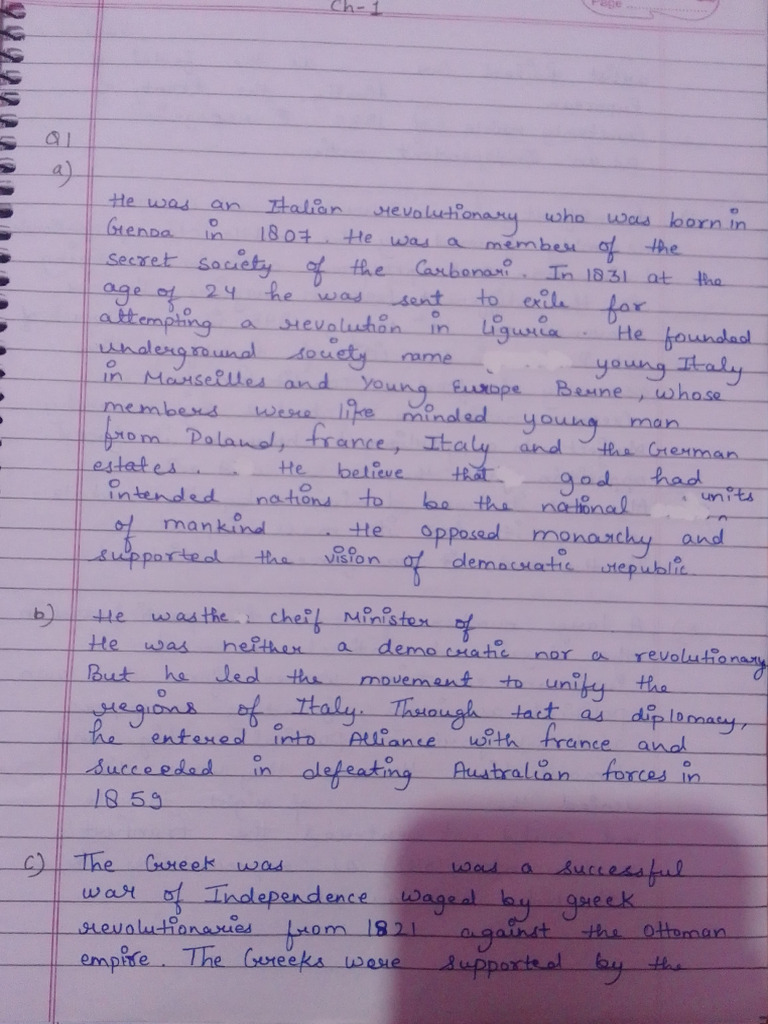 Ch-1
Page
Q1
a)
He was an Italian revolutionary who was born in
Genoa in 1807. He was a member of the
secret society of the Carbonari. In 1831 at the
age of 24 he was sent to exile for
attempting a revolution in liguria. He founded
underground society name young Italy
in Marseilles and Young Europe Berne, whose
members were like minded young man
from Poland, france, Italy and the German
estates. He believe that god had
intended nations to be the national units
of mankind. He opposed monarchy and
supported the vision of democratic republic
b) He was the cheif Minister of
He was neither a democratic nor a revolutionary
But he led the movement to unify the
regions of Italy. Through tact as diplomacy,
he entered into Alliance with france and
succeeded in defeating Australian forces in
1859
c) The Greek was was a successful
war of Independence waged by greek
revolutionaries from 1821 against the Ottoman
empire. The Greeks were supported by the